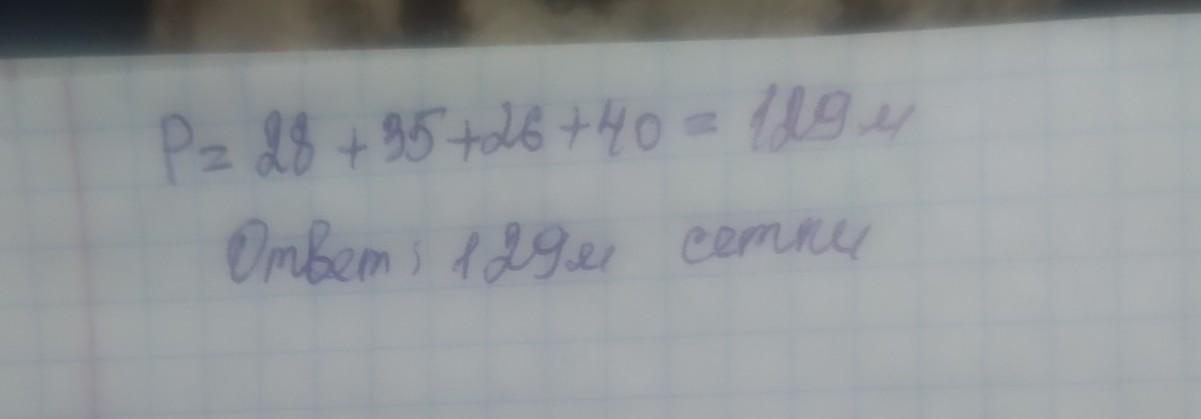 P = 28 + 35 + 26 + 40 = 129 м
Ответ: 129 м сетки